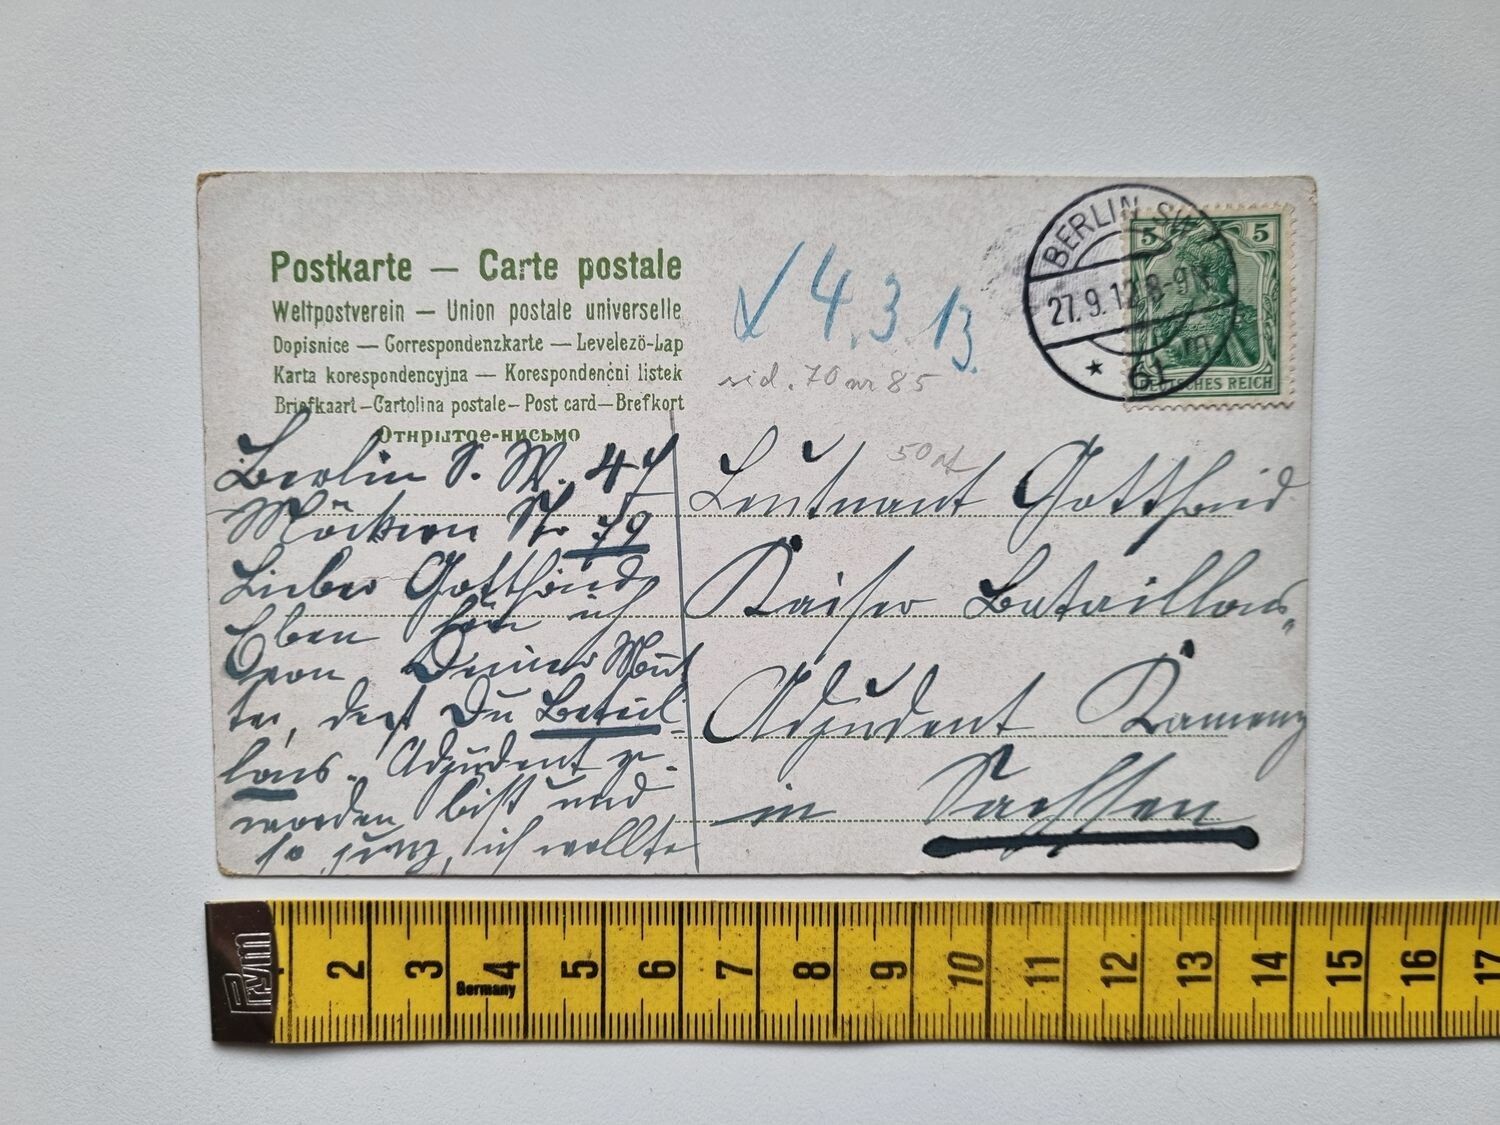 Postkarte — Carte postale
Weltpostverein — Union postale universelle
Dopisnice — Correspondenzkarte — Levelezö-Lap
Karta korespondencyjna — Korespondenčni listek
Briefkaart — Cartolina postale — Post card — Brefkort
Открытое-письмо
BERLIN SW
27.9.12.8-9N
* 61 m
5 5
DEUTSCHES REICH
4.3.13.
sid. 70 nr 85
50
Berlin S. W. 47
Möckern Str 79
Lieber Gottfried
Eben höre ich
von Deiner Mut
ter, daß Du Batail-
lons-Adjudent ge-
worden bist und
so jung, ich wollte
Leutnant Gottfried
Kaiser Bataillons-
Adjudent Kamenz
in Sachsen
Prym
Germany
2 3 4 5 6 7 8 9 10 11 12 13 14 15 16 17